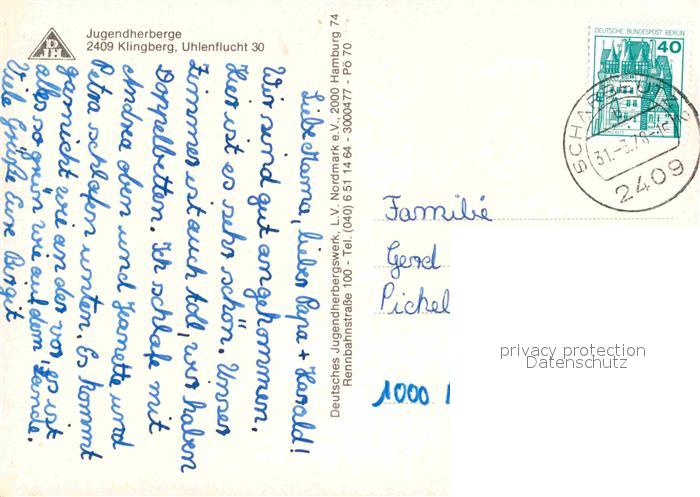 DJH
Jugendherberge
2409 Klingberg, Uhlenflucht 30
Liebe Mama, lieber Papa + Harald!
Wir sind gut angekommen.
Hier ist es sehr schön. Unser
Zimmer ist auch toll, wir haben
Doppelbetten. Ich schlafe mit
Andrea oben und Jeanette und
Petra schlafen unten. Es kommt
garnicht wie an der vor, es ist
alles so grün wie auf dem Lande.
Viele Grüße Eure Birgit
Deutsches Jugendherbergswerk, L.V. Nordmark e.V., 2000 Hamburg 74
Rennbahnstraße 100 - Tel. (040) 6 51 14 64 - 3000477 - Pö 70
DEUTSCHE BUNDESPOST BERLIN
40
SCHARBEUTZ
2409
Familie
Gerd
Pichel
1000
privacy protection
Datenschutz